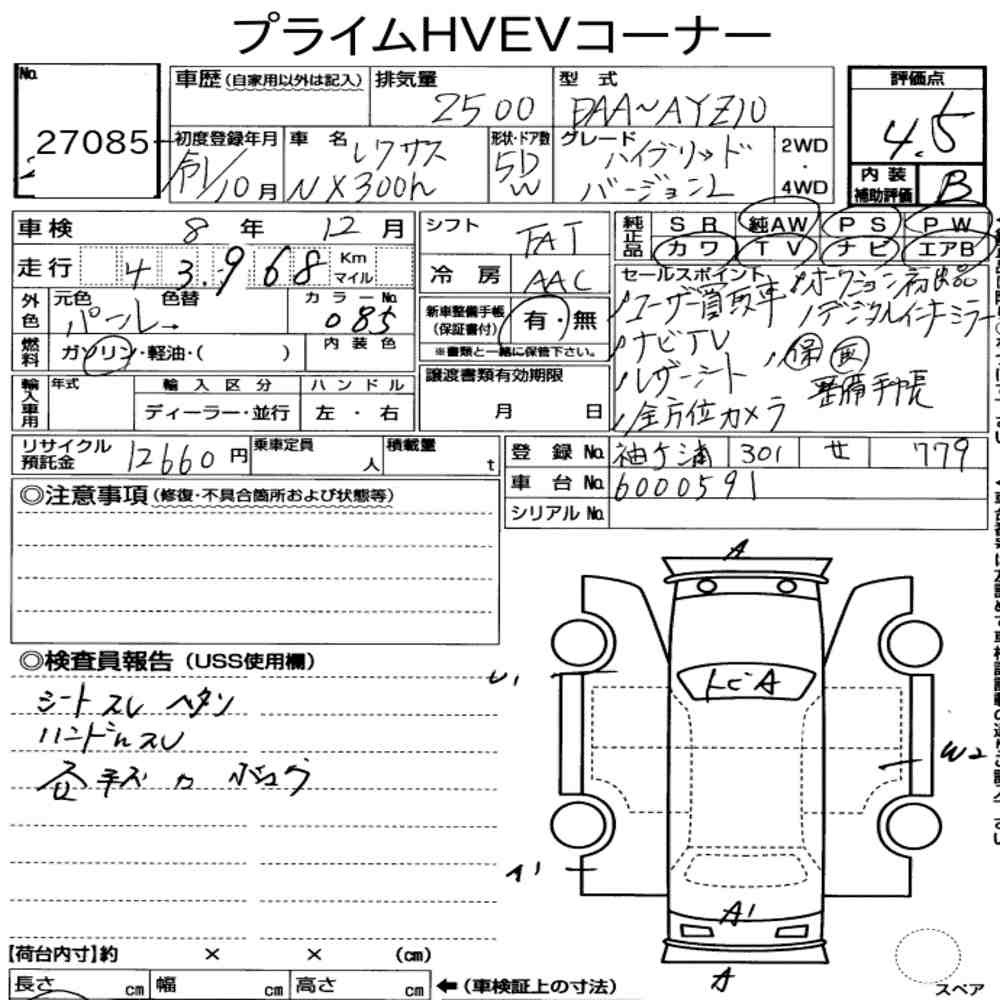 プライムHVEVコーナー
No. 27085
車歴 (自家用以外は記入) 排気量 2500 型式 DAA~AYZ10
初度登録年月 R1/10月 車名 レクサス NX300h 形状・ドア数 5D W グレード ハイブリッド バージョンL 2WD・4WD
評価点 4.5
内装補助評価 B
車検 8年 12月
走行 43.968 Km マイル
外色 元色 パール→ 色替 カラーNo. 085
燃料 ガソリン・軽油・( ) 内装色
輸入車用 年式 輸入区分 ハンドル
ディーラー・並行 左・右
シフト FAT
冷房 AAC
新車整備手帳(保証書付) 有・無
※書類と一緒に保管下さい。
譲渡書類有効期限
月 日
純正品 SR 純AW PS PW
カワ TV ナビ エアB
セールスポイント
ユーザー買取車 オークション初出品
ナビTV デジタルインナーミラー
レザーシート 保
全方位カメラ 整備手帳
リサイクル預託金 12660円 乗車定員 人 積載量 t
登録No. 袖ケ浦 301 せ 779
車台No. 6000591
シリアルNo.
◎注意事項(修復・不具合箇所および状態等)
◎検査員報告(USS使用欄)
シートスレ ヘタリ
ハンドルスレ
A
トビA
U1
W2
A1
A1
A
スペア
【荷台内寸】約 × × (cm)
長さ cm 幅 cm 高さ cm ←(車検証上の寸法)